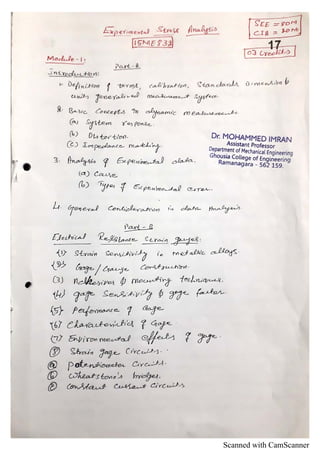 Experimental Stress Analysis
SEE = 80M
CIE = 20M
15ME832
17
03 Credits
Module - 1.
Part - A
Introduction:
1. Definition of terms, calibration, Standards dimension &
units generalized measurement System
2. Basic Concepts in dynamic measurements
(a) System response
(b) Distortion
(c) Impedance matching
Dr. MOHAMMED IMRAN
Assistant Professor
Department of Mechanical Engineering
Ghousia College of Engineering
Ramanagara - 562 159.
3. Analysis of Experimental data.
(a) Cause
(b) Types of Experimental error.
4. General Consideration in data Analysis
Part - B
Electrical Resistance Strain gauges:
(1) Strain Sensitivity in metallic alloys
(2) Gage / Gauge Construction.
(3) Adhesives & mounting techniques.
(4) gage Sensitivity & gage factor
(5) Performance of Gage
(6) Characteristics of Gage
(7) Environmental effects of gage.
(8) Strain gage Circuits.
potentiometer Circuit.
Wheatstone's bridges.
Constant Current Circuits
Scanned with CamScanner